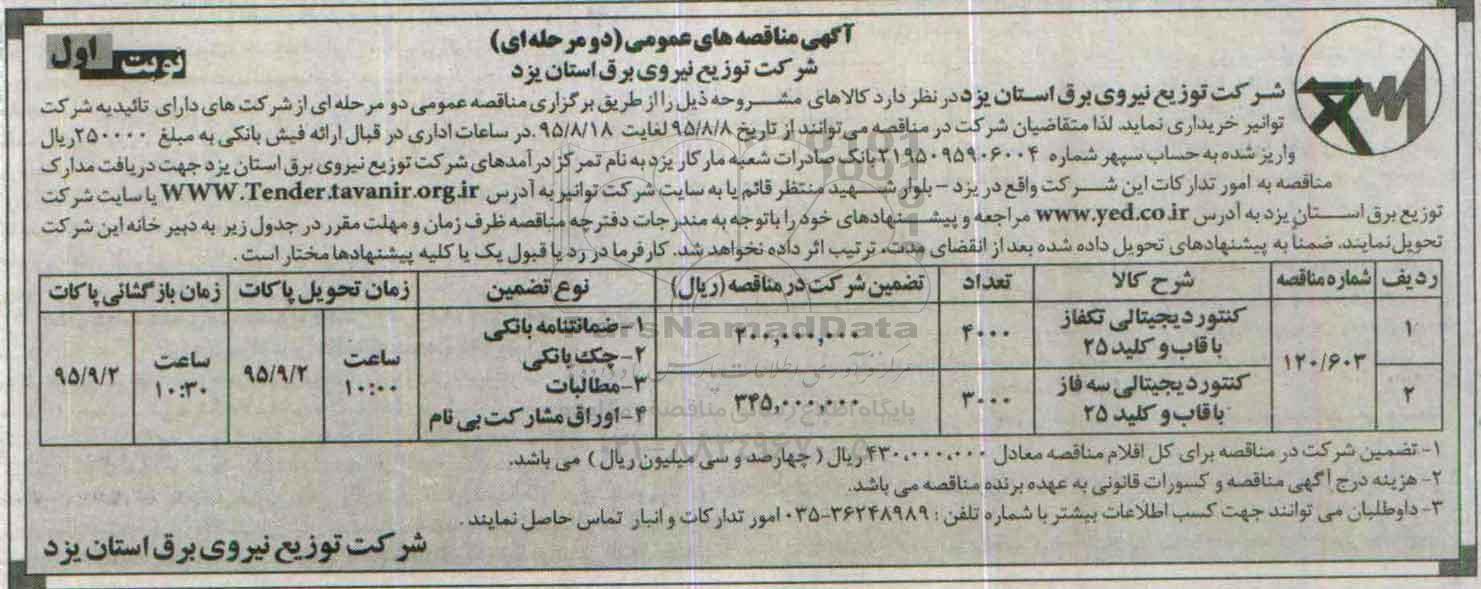 آگهی مناقصه های عمومی (دو مرحله ای)
شرکت توزیع نیروی برق استان یزد
نوبت اول
شرکت توزیع نیروی برق استان یزد در نظر دارد کالاهای مشروحه ذیل را از طریق برگزاری مناقصه عمومی دو مرحله ای از شرکت های دارای تائیدیه شرکت
توانیر خریداری نماید. لذا متقاضیان شرکت در مناقصه می توانند از تاریخ ۹۵/۸/۸ لغایت ۹۵/۸/۱۸ .در ساعات اداری در قبال ارائه فیش بانکی به مبلغ ۲۵۰۰۰۰ریال
واریز شده به حساب سپهر شماره ۲۱۹۵۰۹۵۹۰۶۰۰۴بانک صادرات شعبه مارکار یزد به نام تمرکز درآمدهای شرکت توزیع نیروی برق استان یزد جهت دریافت مدارک
مناقصه به امور تدارکات این شرکت واقع در یزد - بلوار شهید منتظر قائم یا به سایت شرکت توانیر به آدرس WWW.Tender.tavanir.org.ir یا سایت شرکت
توزیع برق استان یزد به آدرس www.yed.co.ir مراجعه و پیشنهادهای خود را باتوجه به مندرجات دفترچه مناقصه ظرف زمان و مهلت مقرر در جدول زیر به دبیر خانه این شرکت
تحویل نمایند. ضمناً به پیشنهادهای تحویل داده شده بعد از انقضای مدت، ترتیب اثر داده نخواهد شد. کارفرما در رد یا قبول یک یا کلیه پیشنهادها مختار است.
ردیف شماره مناقصه شرح کالا تعداد تضمین شرکت در مناقصه (ریال) نوع تضمین زمان تحویل پاکات زمان بازگشائی پاکات
۱ ۱۲۰/۶۰۳ کنتور دیجیتالی تکفاز با قاب و کلید ۲۵ ۴۰۰۰ ۲۰۰,۰۰۰,۰۰۰
۲ کنتور دیجیتالی سه فاز با قاب و کلید ۲۵ ۳۰۰۰ ۳۴۵,۰۰۰,۰۰۰
۱-ضمانتنامه بانکی
۲-چک بانکی
۳-مطالبات
۴-اوراق مشارکت بی نام
ساعت ۱۰:۰۰ ۹۵/۹/۲
ساعت ۱۰:۳۰ ۹۵/۹/۲
۱- تضمین شرکت در مناقصه برای کل اقلام مناقصه معادل ۴۳۰,۰۰۰,۰۰۰ ریال ( چهارصد و سی میلیون ریال ) می باشد.
۲- هزینه درج آگهی مناقصه و کسورات قانونی به عهده برنده مناقصه می باشد.
۳- داوطلبان می توانند جهت کسب اطلاعات بیشتر با شماره تلفن : ۳۶۲۴۸۹۸۹-۰۳۵ امور تدارکات و انبار تماس حاصل نمایند .
شرکت توزیع نیروی برق استان یزد
ParsNamadData